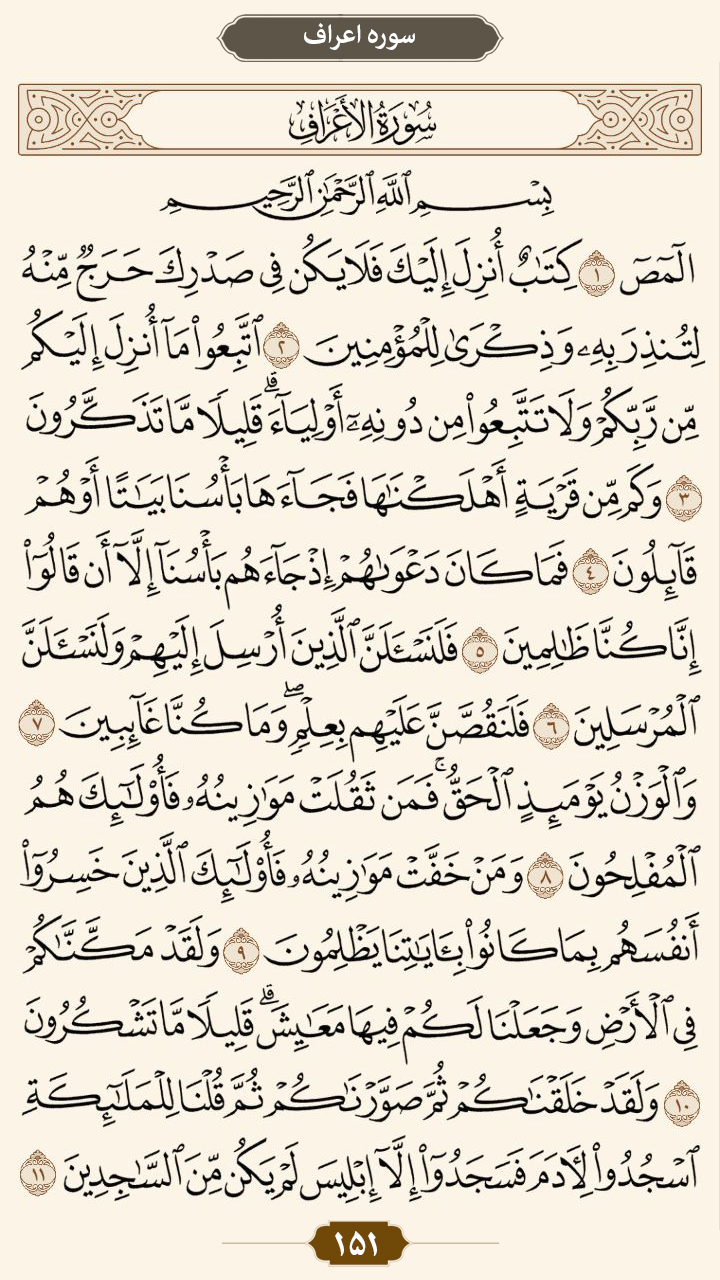 سوره اعراف
سُورَةُ الأَعْرَافِ
بِسْمِ ٱللَّهِ ٱلرَّحْمَٰنِ ٱلرَّحِيمِ
الٓمٓصٓ ١ كِتَٰبٌ أُنزِلَ إِلَيْكَ فَلَا يَكُن فِى صَدْرِكَ حَرَجٌ مِّنْهُ
لِتُنذِرَ بِهِۦ وَذِكْرَىٰ لِلْمُؤْمِنِينَ ٢ ٱتَّبِعُوا۟ مَآ أُنزِلَ إِلَيْكُم
مِّن رَّبِّكُمْ وَلَا تَتَّبِعُوا۟ مِن دُونِهِۦٓ أَوْلِيَآءَ ۗ قَلِيلًا مَّا تَذَكَّرُونَ
٣ وَكَم مِّن قَرْيَةٍ أَهْلَكْنَٰهَا فَجَآءَهَا بَأْسُنَا بَيَٰتًا أَوْ هُمْ
قَآئِلُونَ ٤ فَمَا كَانَ دَعْوَىٰهُمْ إِذْ جَآءَهُم بَأْسُنَآ إِلَّآ أَن قَالُوٓا۟
إِنَّا كُنَّا ظَٰلِمِينَ ٥ فَلَنَسْـَٔلَنَّ ٱلَّذِينَ أُرْسِلَ إِلَيْهِمْ وَلَنَسْـَٔلَنَّ
ٱلْمُرْسَلِينَ ٦ فَلَنَقُصَّنَّ عَلَيْهِم بِعِلْمٍ ۖ وَمَا كُنَّا غَآئِبِينَ ٧
وَٱلْوَزْنُ يَوْمَئِذٍ ٱلْحَقُّ ۚ فَمَن ثَقُلَتْ مَوَٰزِينُهُۥ فَأُو۟لَٰٓئِكَ هُمُ
ٱلْمُفْلِحُونَ ٨ وَمَنْ خَفَّتْ مَوَٰزِينُهُۥ فَأُو۟لَٰٓئِكَ ٱلَّذِينَ خَسِرُوٓا۟
أَنفُسَهُم بِمَا كَانُوا۟ بِـَٔايَٰتِنَا يَظْلِمُونَ ٩ وَلَقَدْ مَكَّنَّٰكُمْ
فِى ٱلْأَرْضِ وَجَعَلْنَا لَكُمْ فِيهَا مَعَٰيِشَ ۗ قَلِيلًا مَّا تَشْكُرُونَ
١٠ وَلَقَدْ خَلَقْنَٰكُمْ ثُمَّ صَوَّرْنَٰكُمْ ثُمَّ قُلْنَا لِلْمَلَٰٓئِكَةِ
ٱسْجُدُوا۟ لِـَٔادَمَ فَسَجَدُوٓا۟ إِلَّآ إِبْلِيسَ لَمْ يَكُن مِّنَ ٱلسَّٰجِدِينَ ١١
۱۵۱